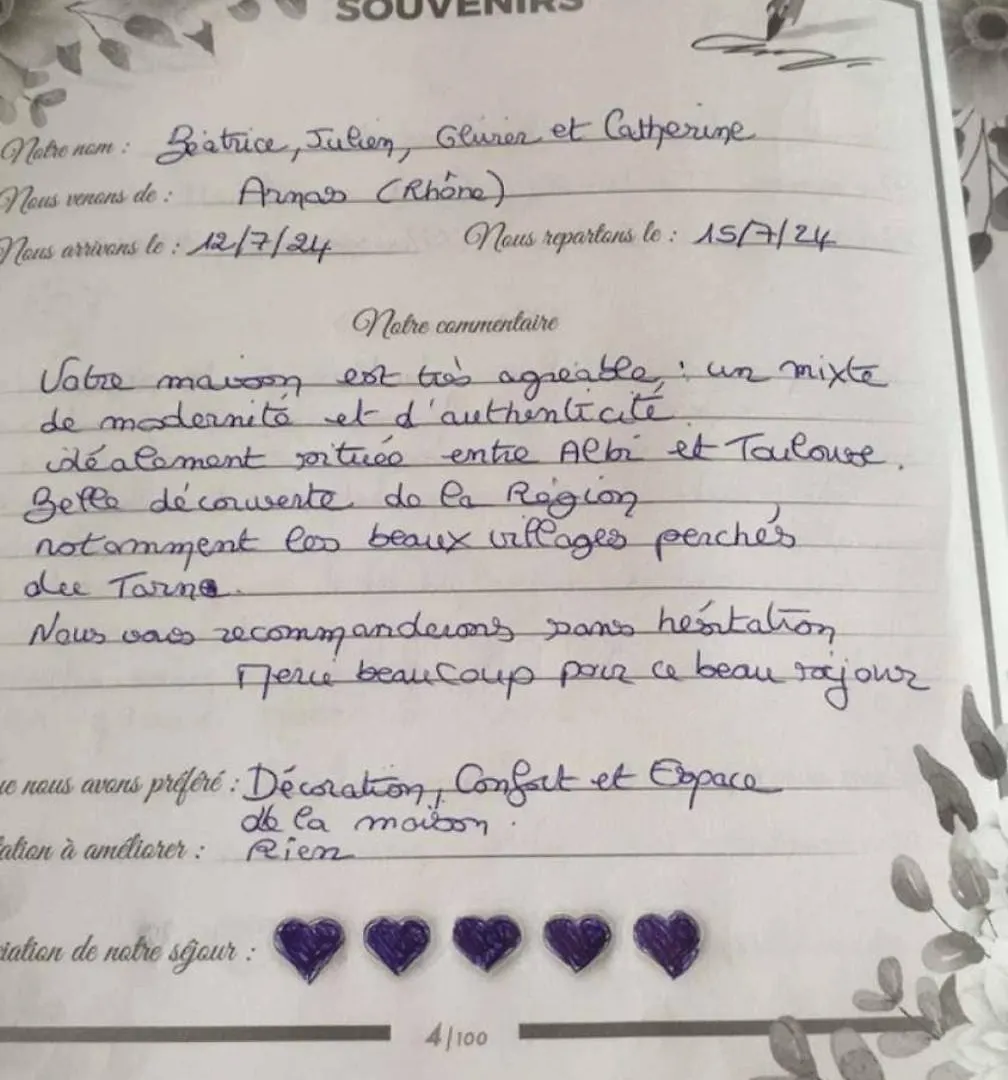 SOUVENIRS
Notre nom : Béatrice, Julien, et Catherine
Nous venons de : Arnas (Rhône)
Nous arrivons le : 12/7/24 Nous repartons le : 15/7/24
Notre commentaire
Votre maison est très agréable, : un mixte
de modernité et d'authenticité
idéalement située entre Albi et Toulouse.
Belle découverte de la Région
notamment les beaux villages perchés
du Tarn.
Nous vous recommanderons sans hésitation
Merci beaucoup pour ce beau séjour
ue nous avons préféré : Décoration, Confort et Espace
de la maison.
ation à améliorer : Rien
ciation de notre séjour :
4/100